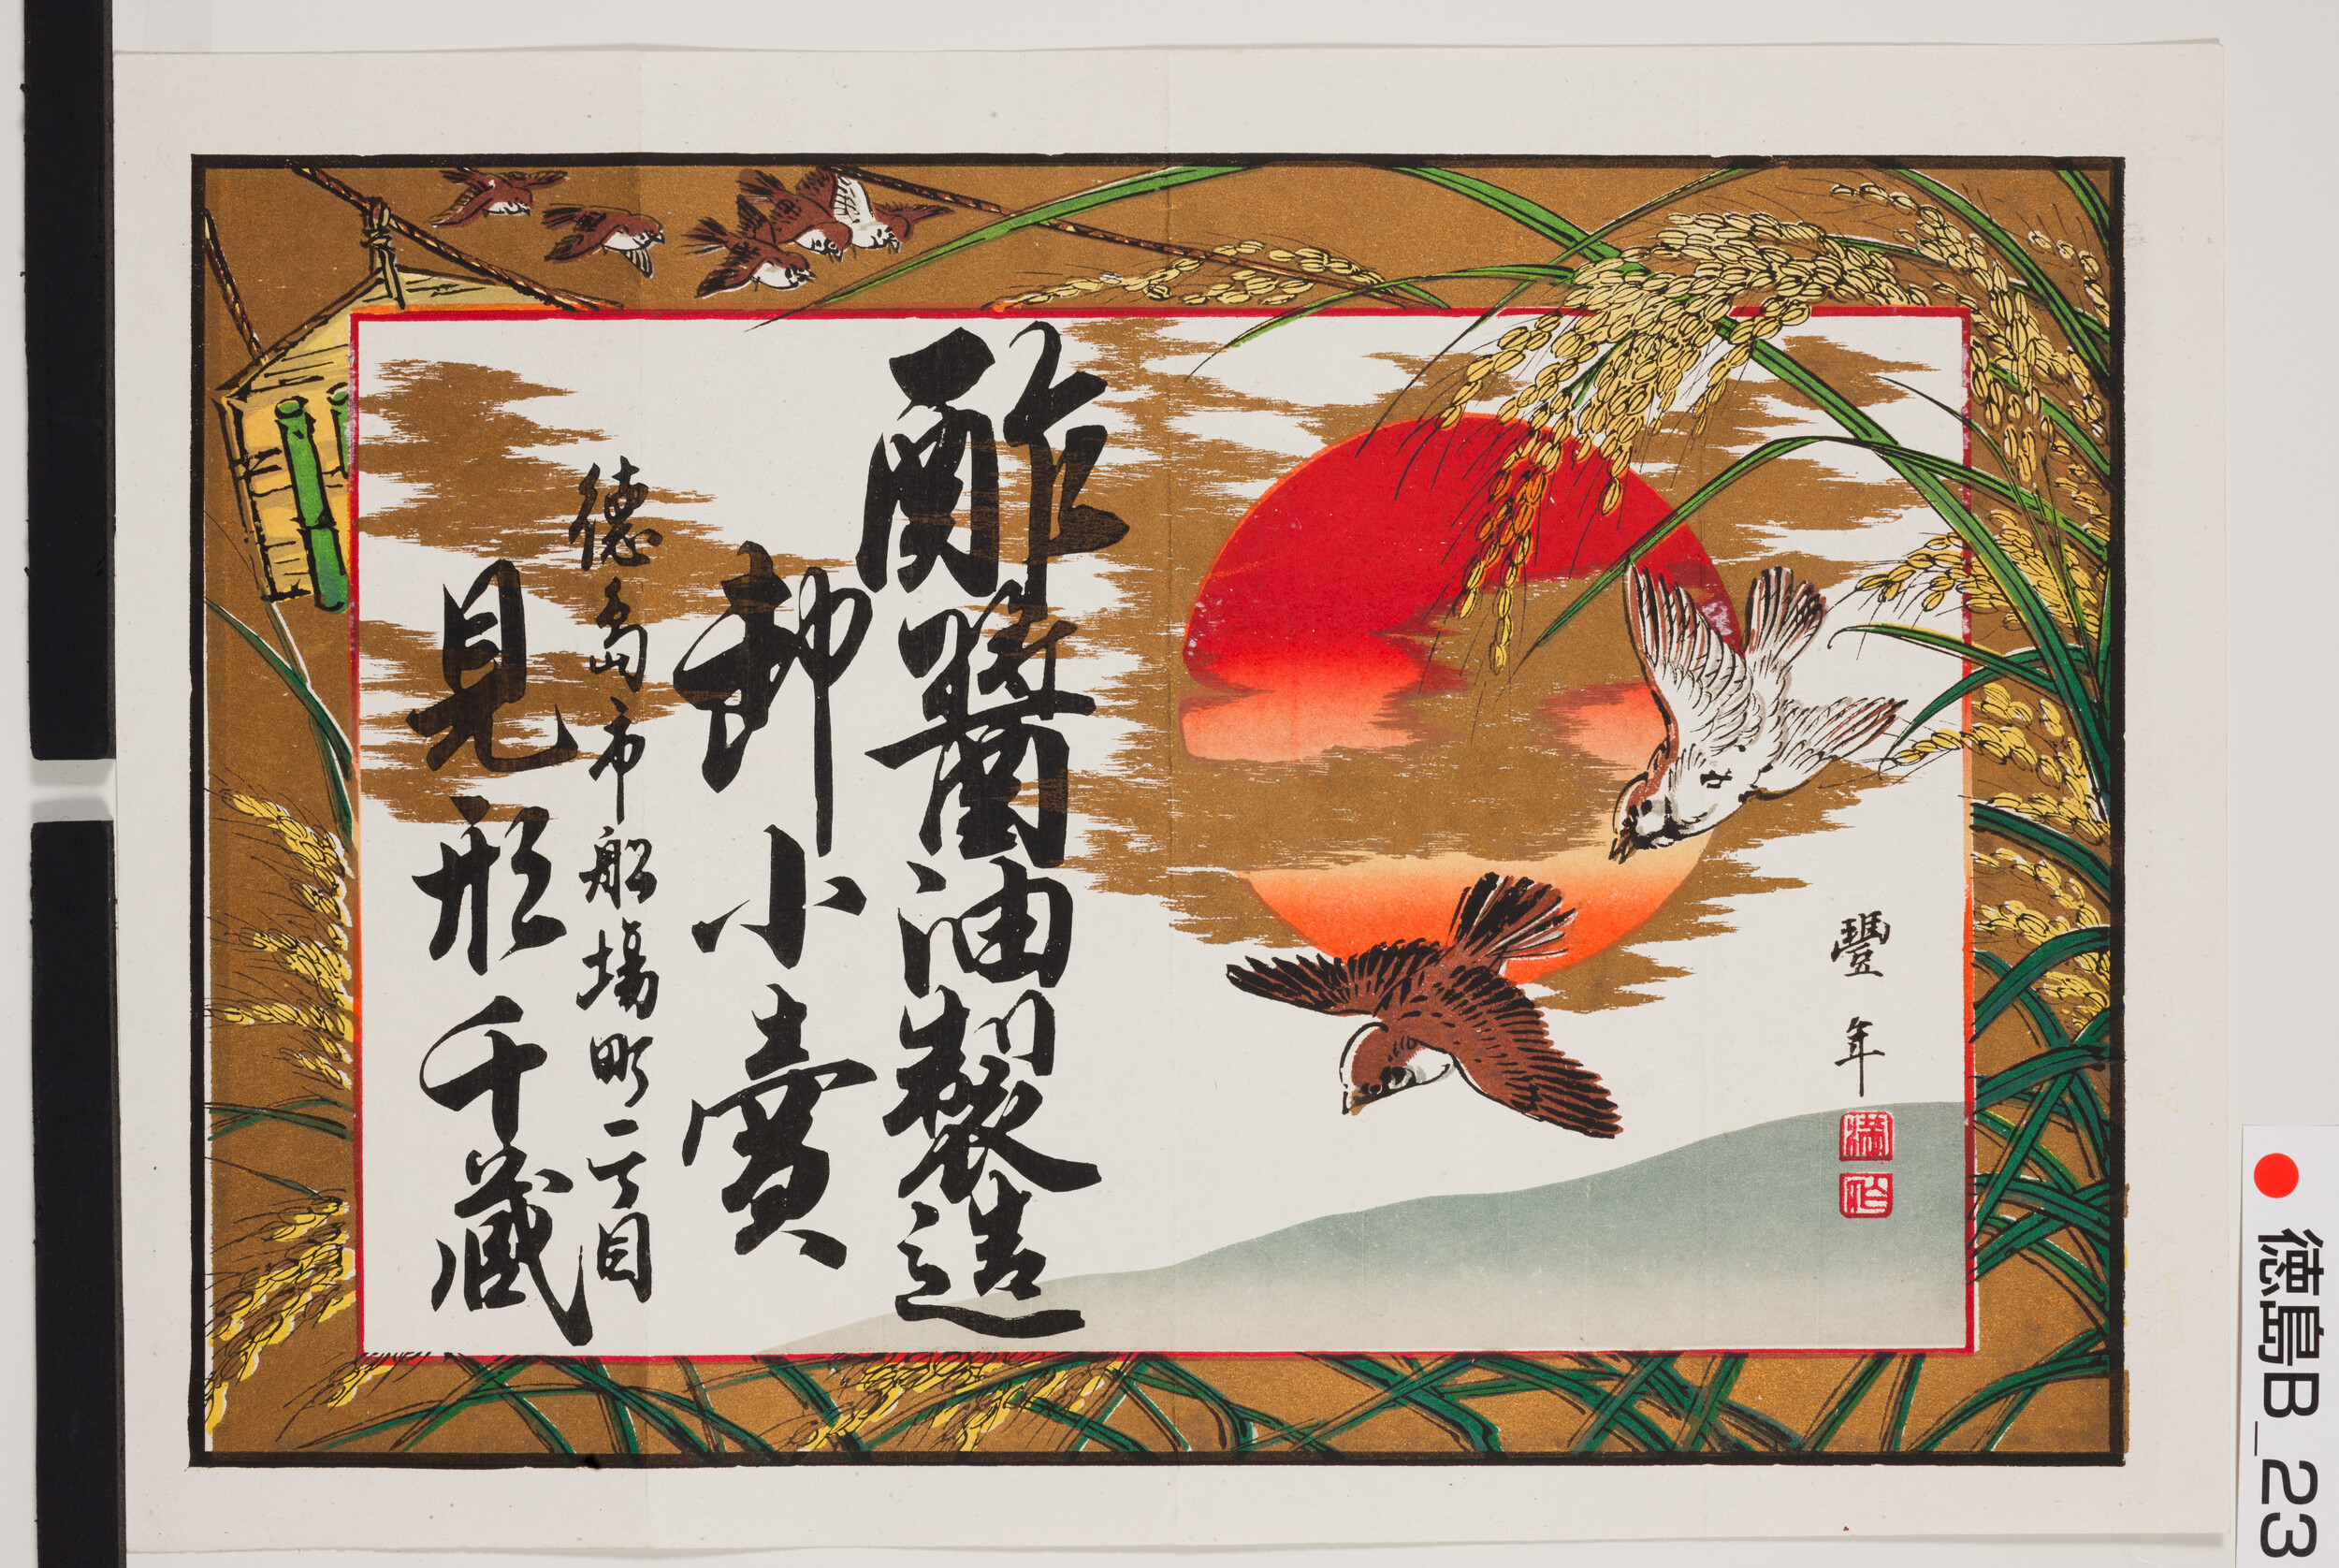 豐年
酢醬油製造
卸小賣
德島市船場町二丁目
見形千藏
徳島B_23